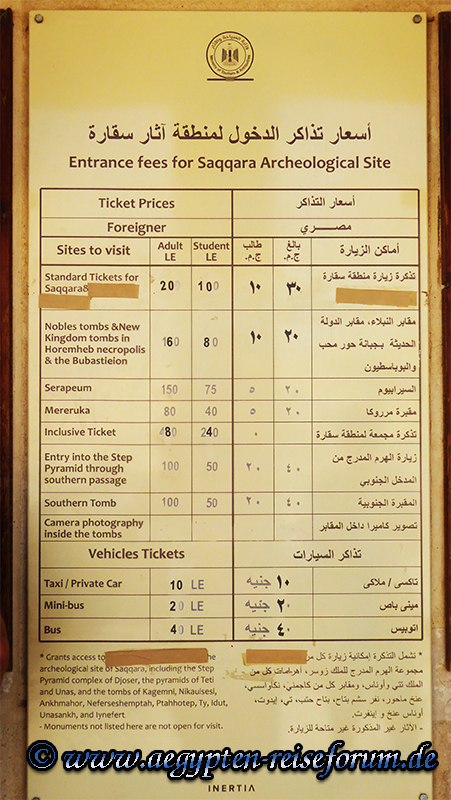 وزارة السياحة والآثار
Ministry of Tourism & Antiquities
أسعار تذاكر الدخول لمنطقة آثار سقارة
Entrance fees for Saqqara Archeological Site
Ticket Prices أسعار التذاكر
Foreigner مصـــــري
Sites to visit Adult LE Student LE طالب ج.م. بالغ ج.م. أماكن الزيارة
Standard Tickets for 200 100 ١٠ ٣٠ تذكرة زيارة منطقة سقارة
Saqqara&
Nobles tombs &New مقابر النبلاء، مقابر الدولة
Kingdom tombs in 160 80 ١٠ ٢٠ الحديثة بجبانة حور محب
Horemheb necropolis والبوباسطيون
& the Bubastieion
Serapeum 150 75 ٥ ٢٠ السيرابيوم
Mereruka 80 40 ٥ ٢٠ مقبرة مرروكا
Inclusive Ticket 480 240 ٠ تذكرة مجمعة لمنطقة سقارة
Entry into the Step زيارة الهرم المدرج من
Pyramid through 100 50 ٢٠ ٤٠ المدخل الجنوبي
southern passage
Southern Tomb 100 50 ٢٠ ٤٠ المقبرة الجنوبية
Camera photography تصوير كاميرا داخل المقابر
inside the tombs
Vehicles Tickets تذاكر السيارات
Taxi / Private Car 10 LE ١٠ جنيه تاكسى / ملاكى
Mini-bus 20 LE ٢٠ جنيه مينى باص
Bus 40 LE ٤٠ جنيه اتوبيس
* Grants access to the
archeological site of Saqqara, including the Step
Pyramid complex of Djoser, the pyramids of Teti
and Unas, and the tombs of Kagemni, Nikauisesi,
Ankhmahor, Neferseshemptah, Ptahhotep, Ty, Idut,
Unasankh, and Iynefert
- Monuments not listed here are not open for visit.
* تشمل التذكرة إمكانية زيارة كل من
مجموعة الهرم المدرج للملك زوسر، أهرامات كل من
الملك تتي وأوناس، ومقابر كل من كاجمني، نكاواسسي،
عنخ ماحور، نفر سشم بتاح، بتاح حتب، تي، إيدوت،
أوناس عنخ و إينفرت.
- الآثار غير المذكورة غير متاحة للزيارة.
© www.aegypten-reiseforum.de
INERTIA